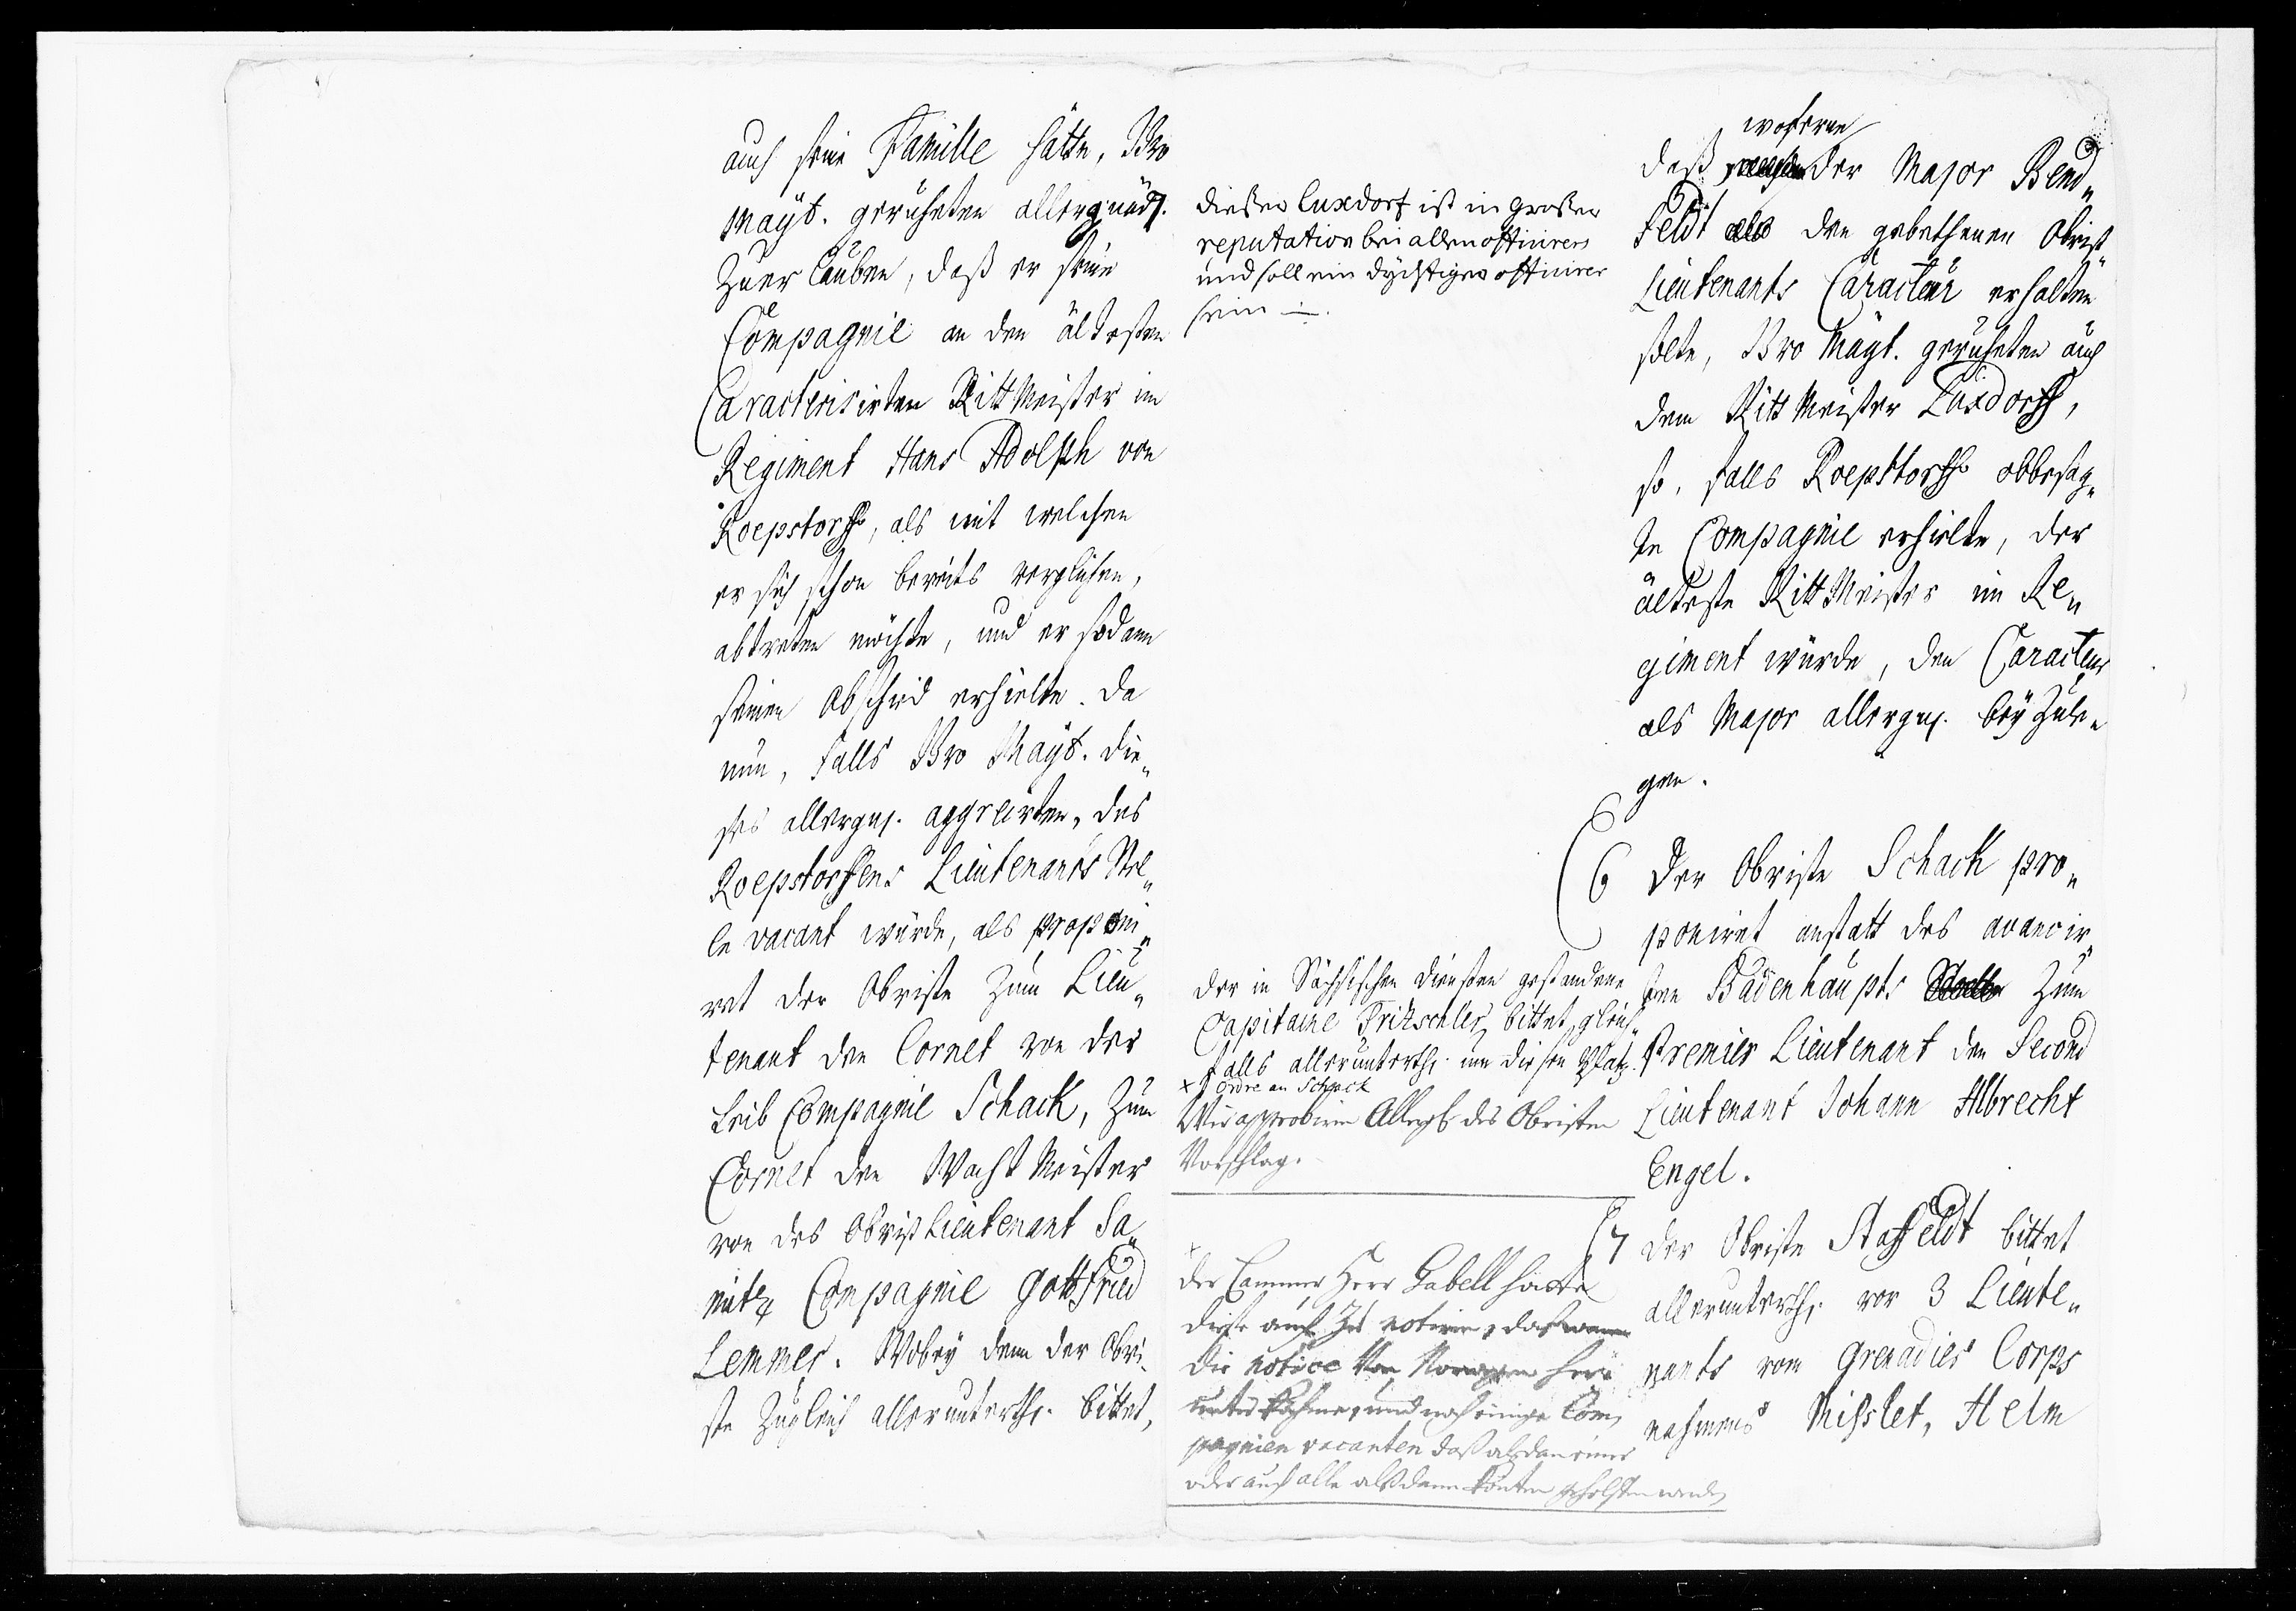 auch seine Famille hätte, Ihro
Mayt. geruheten allergnädst.
zuerlauben, daß er seine
Compagnie an den ältesten
Caracterisirten RittMeister im
Regiment Hans Adolph von
Roepstorff, als mit welchen
er sich schon bereits verglichen,
abtreten möchte, und er sodann
seinen Abschid erhielte. Da
nun, falls Ihro Mayt. die„
ses allergn. aggreirten, des
Roepstorffens Lieutenants Stel„
le vacant würde, als proponi„
ret der Obriste zum Lieu„
tenant den Cornet von der
Leib Compagnie Schack, zum
Cornet den WachtMeister
von des ObristLieutenant Sa„
nitz Compagnie Gottfried
Lemmer. Wobey denn der Obri„
ste zugleich allerunterth. bittet,
dießer Luxdorf ist in großer
reputation bei allen officirers
und soll ein dychtiger officirer
sein ÷.
Der in Sächsischen Diensten gestandene
Capitaine Fritzschler, bittet gleich„
falls allerunterth. um diesen Platz.
x ordre an Schack
Wir approbiren Allergst. des Obristen
Vorschlag.
x
der Cammer Herr Gabell hatte
dieße auch zu notiren, das wann
die notice Von Norwegen herr
unter kähme, und noch einige Com„
pagnien vacanten daß alsdan einer
oder auch alle alßdann konten geholffen werden
woferne
daß der Major Bend„
feldt den gebethenen Obrist„
Lieutenants Caracteur erhalten
solte, Ihro Mayt. geruheten auch
dem RittMeister Luxdorff,
so, falls Roepstorff obbesag„
te Compagnie erhielte, der
älteste RittMeister im Re„
giment würde, den Caracteur
als Major allergn. beyzule„
gen.
6 Der Obriste Schack pro„
poniret anstatt des avancir„
ten Badenhaupts zum
Premier Lieutenant den Second
Lieutenant Johann Albrecht
Engel.
7 Der Obriste Staffeldt bittet
allerunterth. vor 3 Lieute„
nants vom Grenadier Corps
nahmens Misslet, Helm